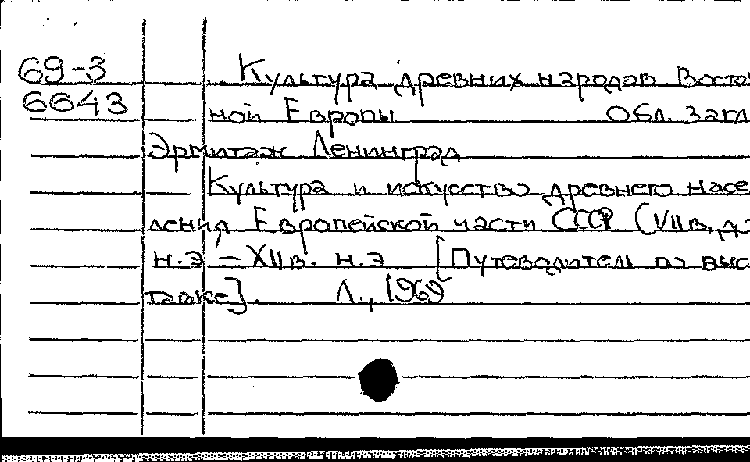 69-3 Культура древних народов Восто
6643 ной Европы Обл. загл
Эрмитаж Ленинград
Культура и искусство древнего насе
ления Европейской части СССР (VII в. до
н.э – XII в. н.э [Путеводитель по выс
тавке]. Л., 1969